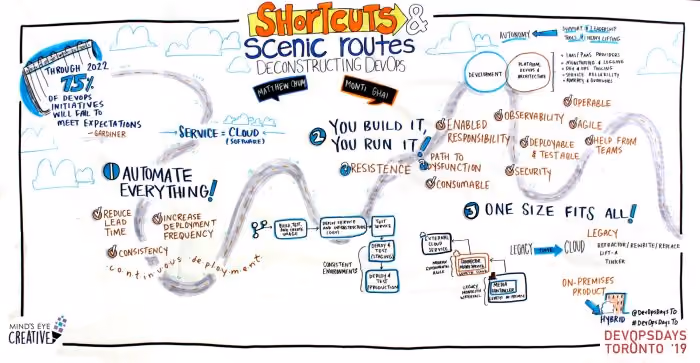 SHORTCUTS &
SCENIC ROUTES
DECONSTRUCTING DEVOPS
MATTHEW CHUM
MONTI GHAI
THROUGH 2022
75%
OF DEVOPS
INITIATIVES
WILL FAIL TO
MEET EXPECTATIONS
- GARDINER
SERVICE = CLOUD
(SOFTWARE)
1 AUTOMATE
EVERYTHING!
REDUCE
LEAD
TIME
INCREASE
DEPLOYMENT
FREQUENCY
CONSISTENCY
continuous deployment
2 YOU BUILD IT,
YOU RUN IT!
RESISTENCE
PATH TO
DYSFUNCTION
CONSUMABLE
ENABLED
RESPONSIBILITY
DEPLOY SERVICE
AND INFRASTRUCTURE
TEST
SERVICE
DEPLOY &
TEST
(STAGING)
DEPLOY &
TEST
PRODUCTION
CONSISTENT
ENVIRONMENTS
AUTONOMY
DEVELOPMENT
PLATFORM,
DEVOPS &
ARCHITECTURE
IAAS/PAAS PROVIDERS
MONITORING & LOGGING
SERVICE RELIABILITY
OBSERVABILITY
OPERABLE
AGILE
DEPLOYABLE
& TESTABLE
HELP FROM
TEAMS
SECURITY
3 ONE SIZE FITS ALL!
EXTERNAL
CLOUD
SERVICE
LEGACY
CLOUD
LEGACY
REFACTOR/REWRITE/REPLACE
TINKER
ON-PREMISES
PRODUCT
HYBRID
@DEVOPSDAYSTO
#DEVOPSDAYSTO
MIND'S EYE
CREATIVE
DEVOPSDAYS
TORONTO '19